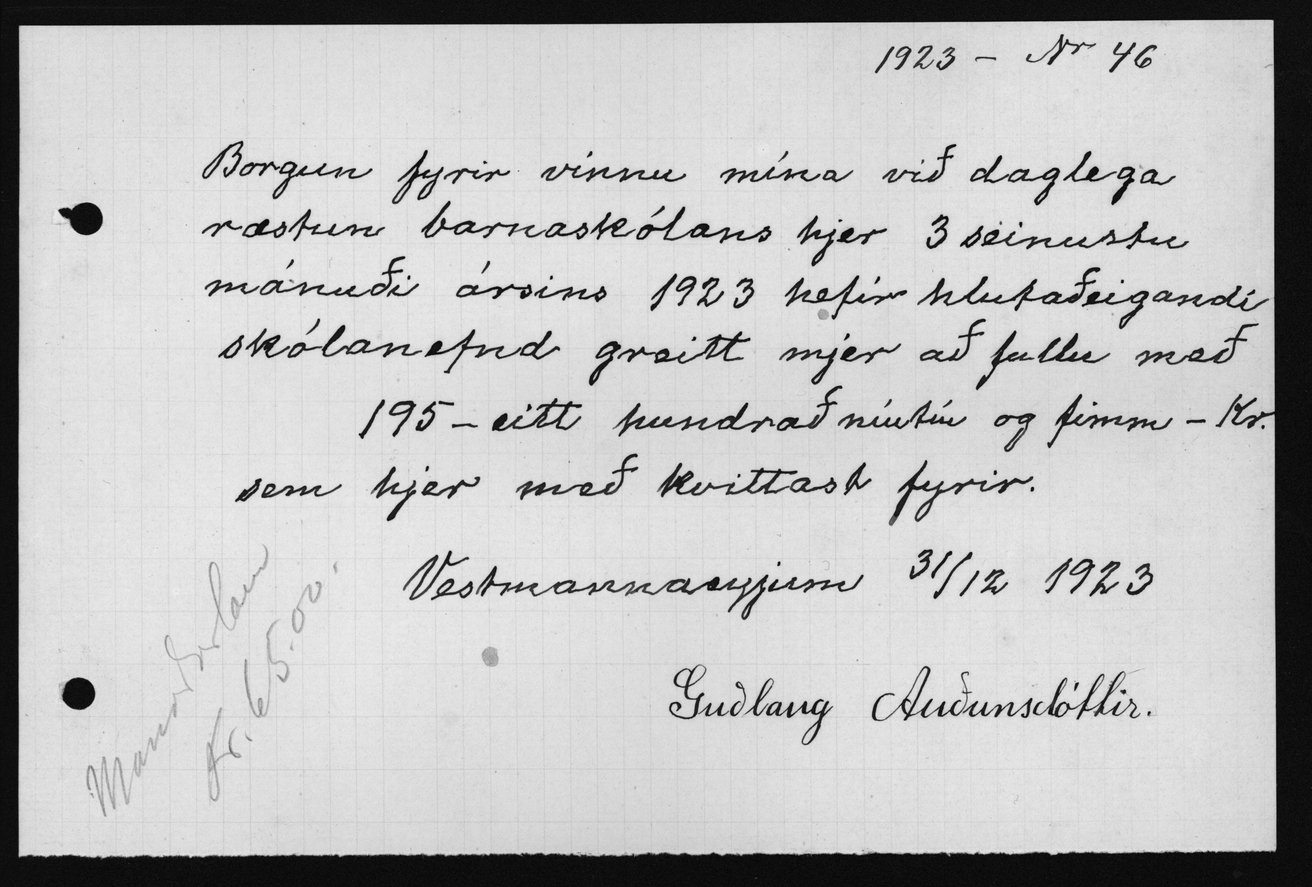 1923 - Nr 46
Borgun fyrir vinnu mína við daglega
ræstun barnaskólans hjer 3 seinustu
mánuði ársins 1923 hefir hlutaðeigandi
skólanefnd greitt mjer að fullu með
195 - eitt hundrað níutíu og fimm - Kr.
sem hjer með kvittast fyrir.
Vestmannaeyjum 31/12 1923
Guðlaug Auðunsdóttir.
Manaðarlaun
Kr. 65.00.